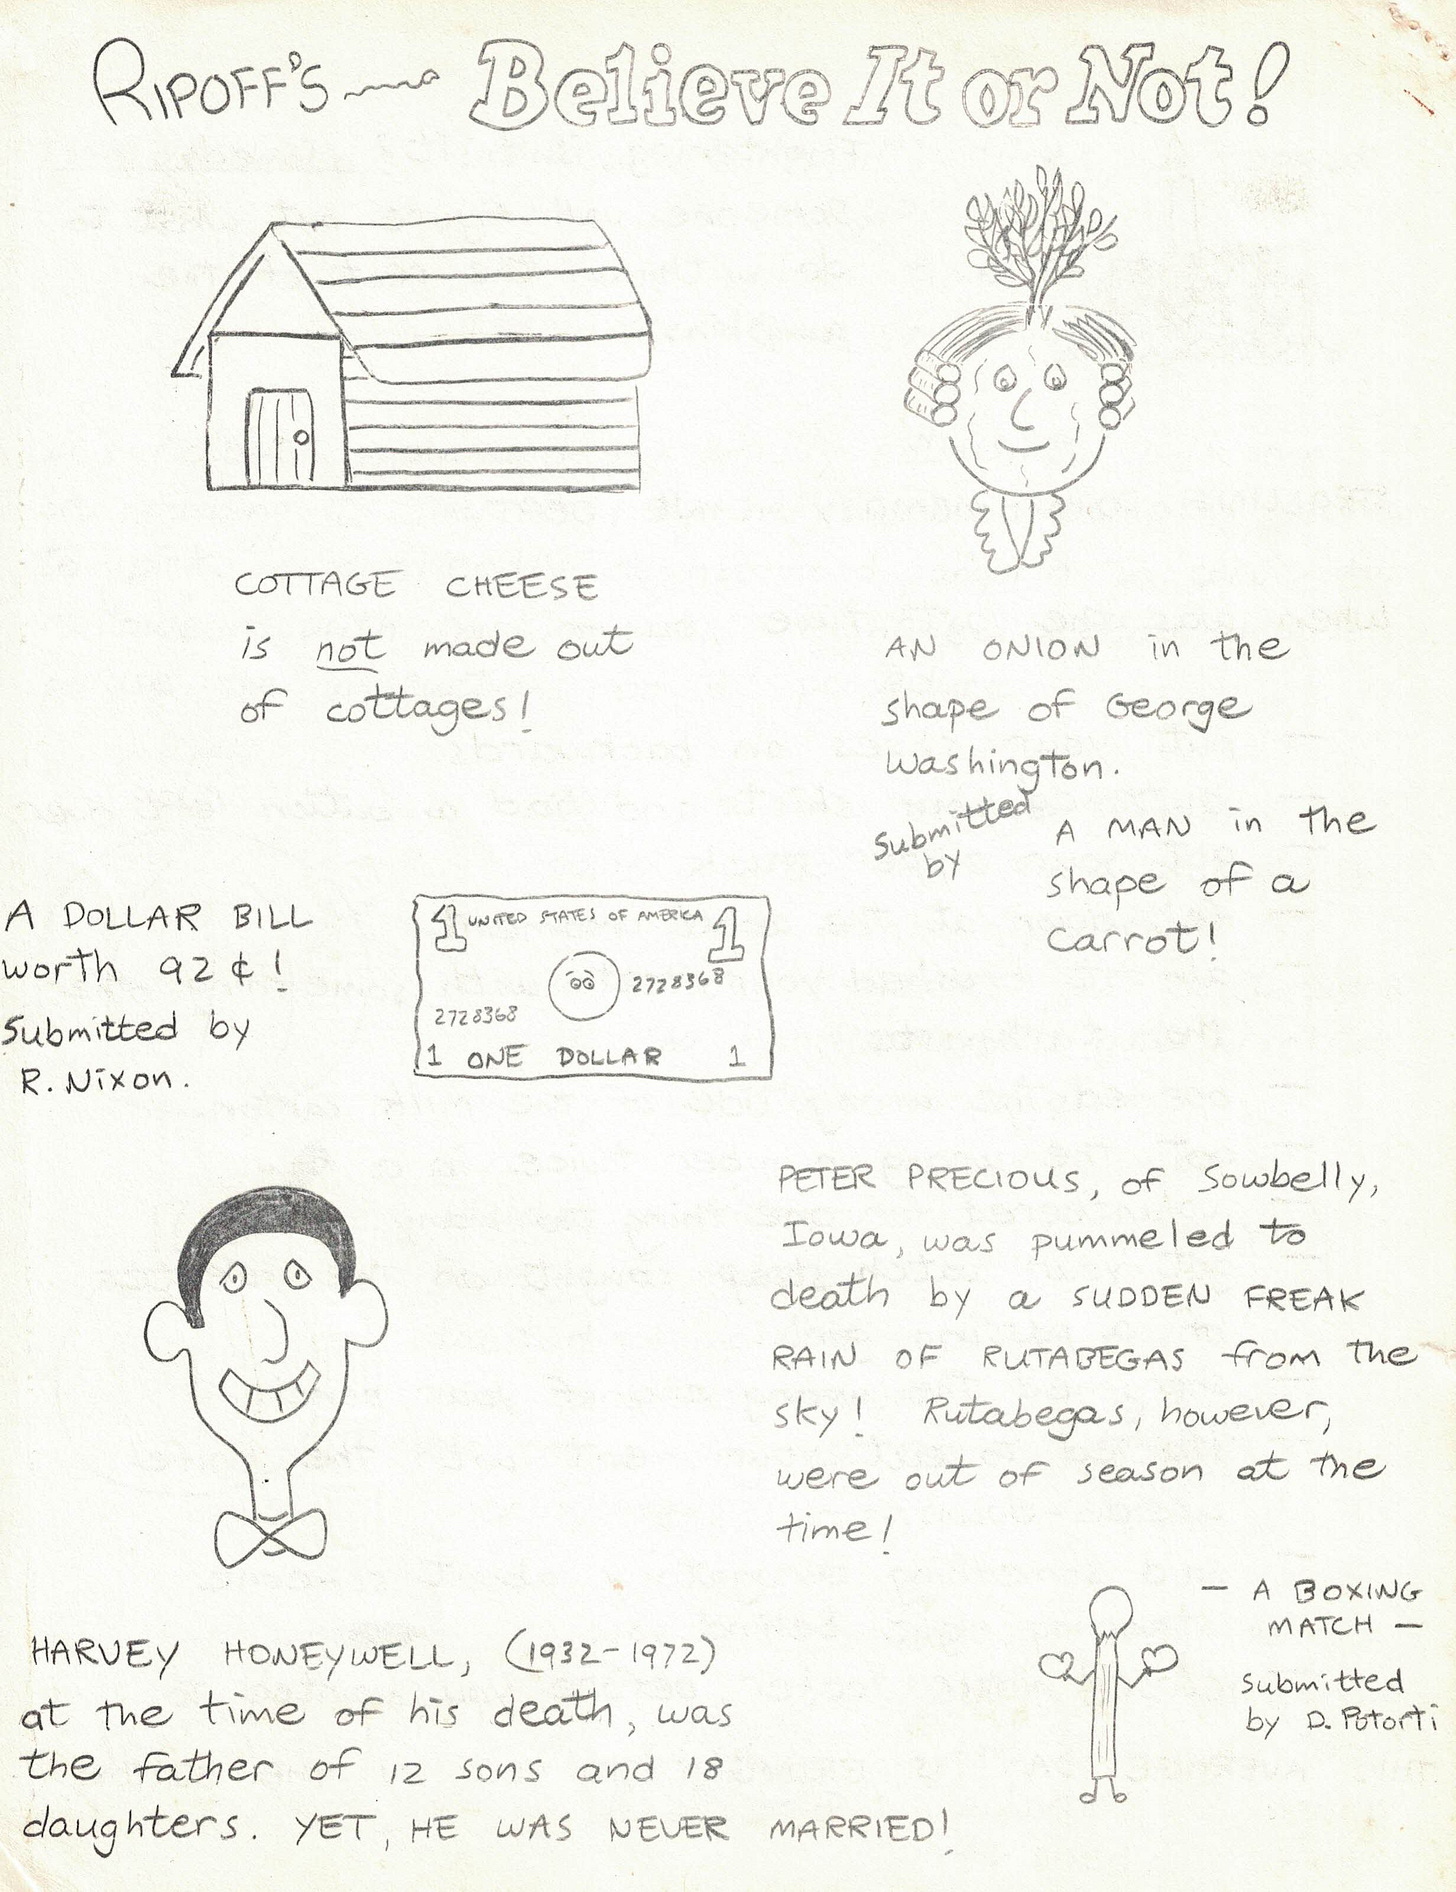 RIPOFF'S Believe It or Not!
COTTAGE CHEESE
is not made out
of cottages!
AN ONION in the
shape of George
Washington.
Submitted
by
A MAN in the
shape of a
carrot!
A DOLLAR BILL
worth 92¢!
Submitted by
R. Nixon.
1 UNITED STATES OF AMERICA 1
2728368
2728368
1 ONE DOLLAR 1
PETER PRECIOUS, of Sowbelly,
Iowa, was pummeled to
death by a SUDDEN FREAK
RAIN OF RUTABEGAS from the
sky! Rutabegas, however,
were out of season at the
time!
HARVEY HONEYWELL, (1932-1972)
at the time of his death, was
the father of 12 sons and 18
daughters. YET, HE WAS NEVER MARRIED!
— A BOXING
MATCH —
Submitted
by D. Potorti